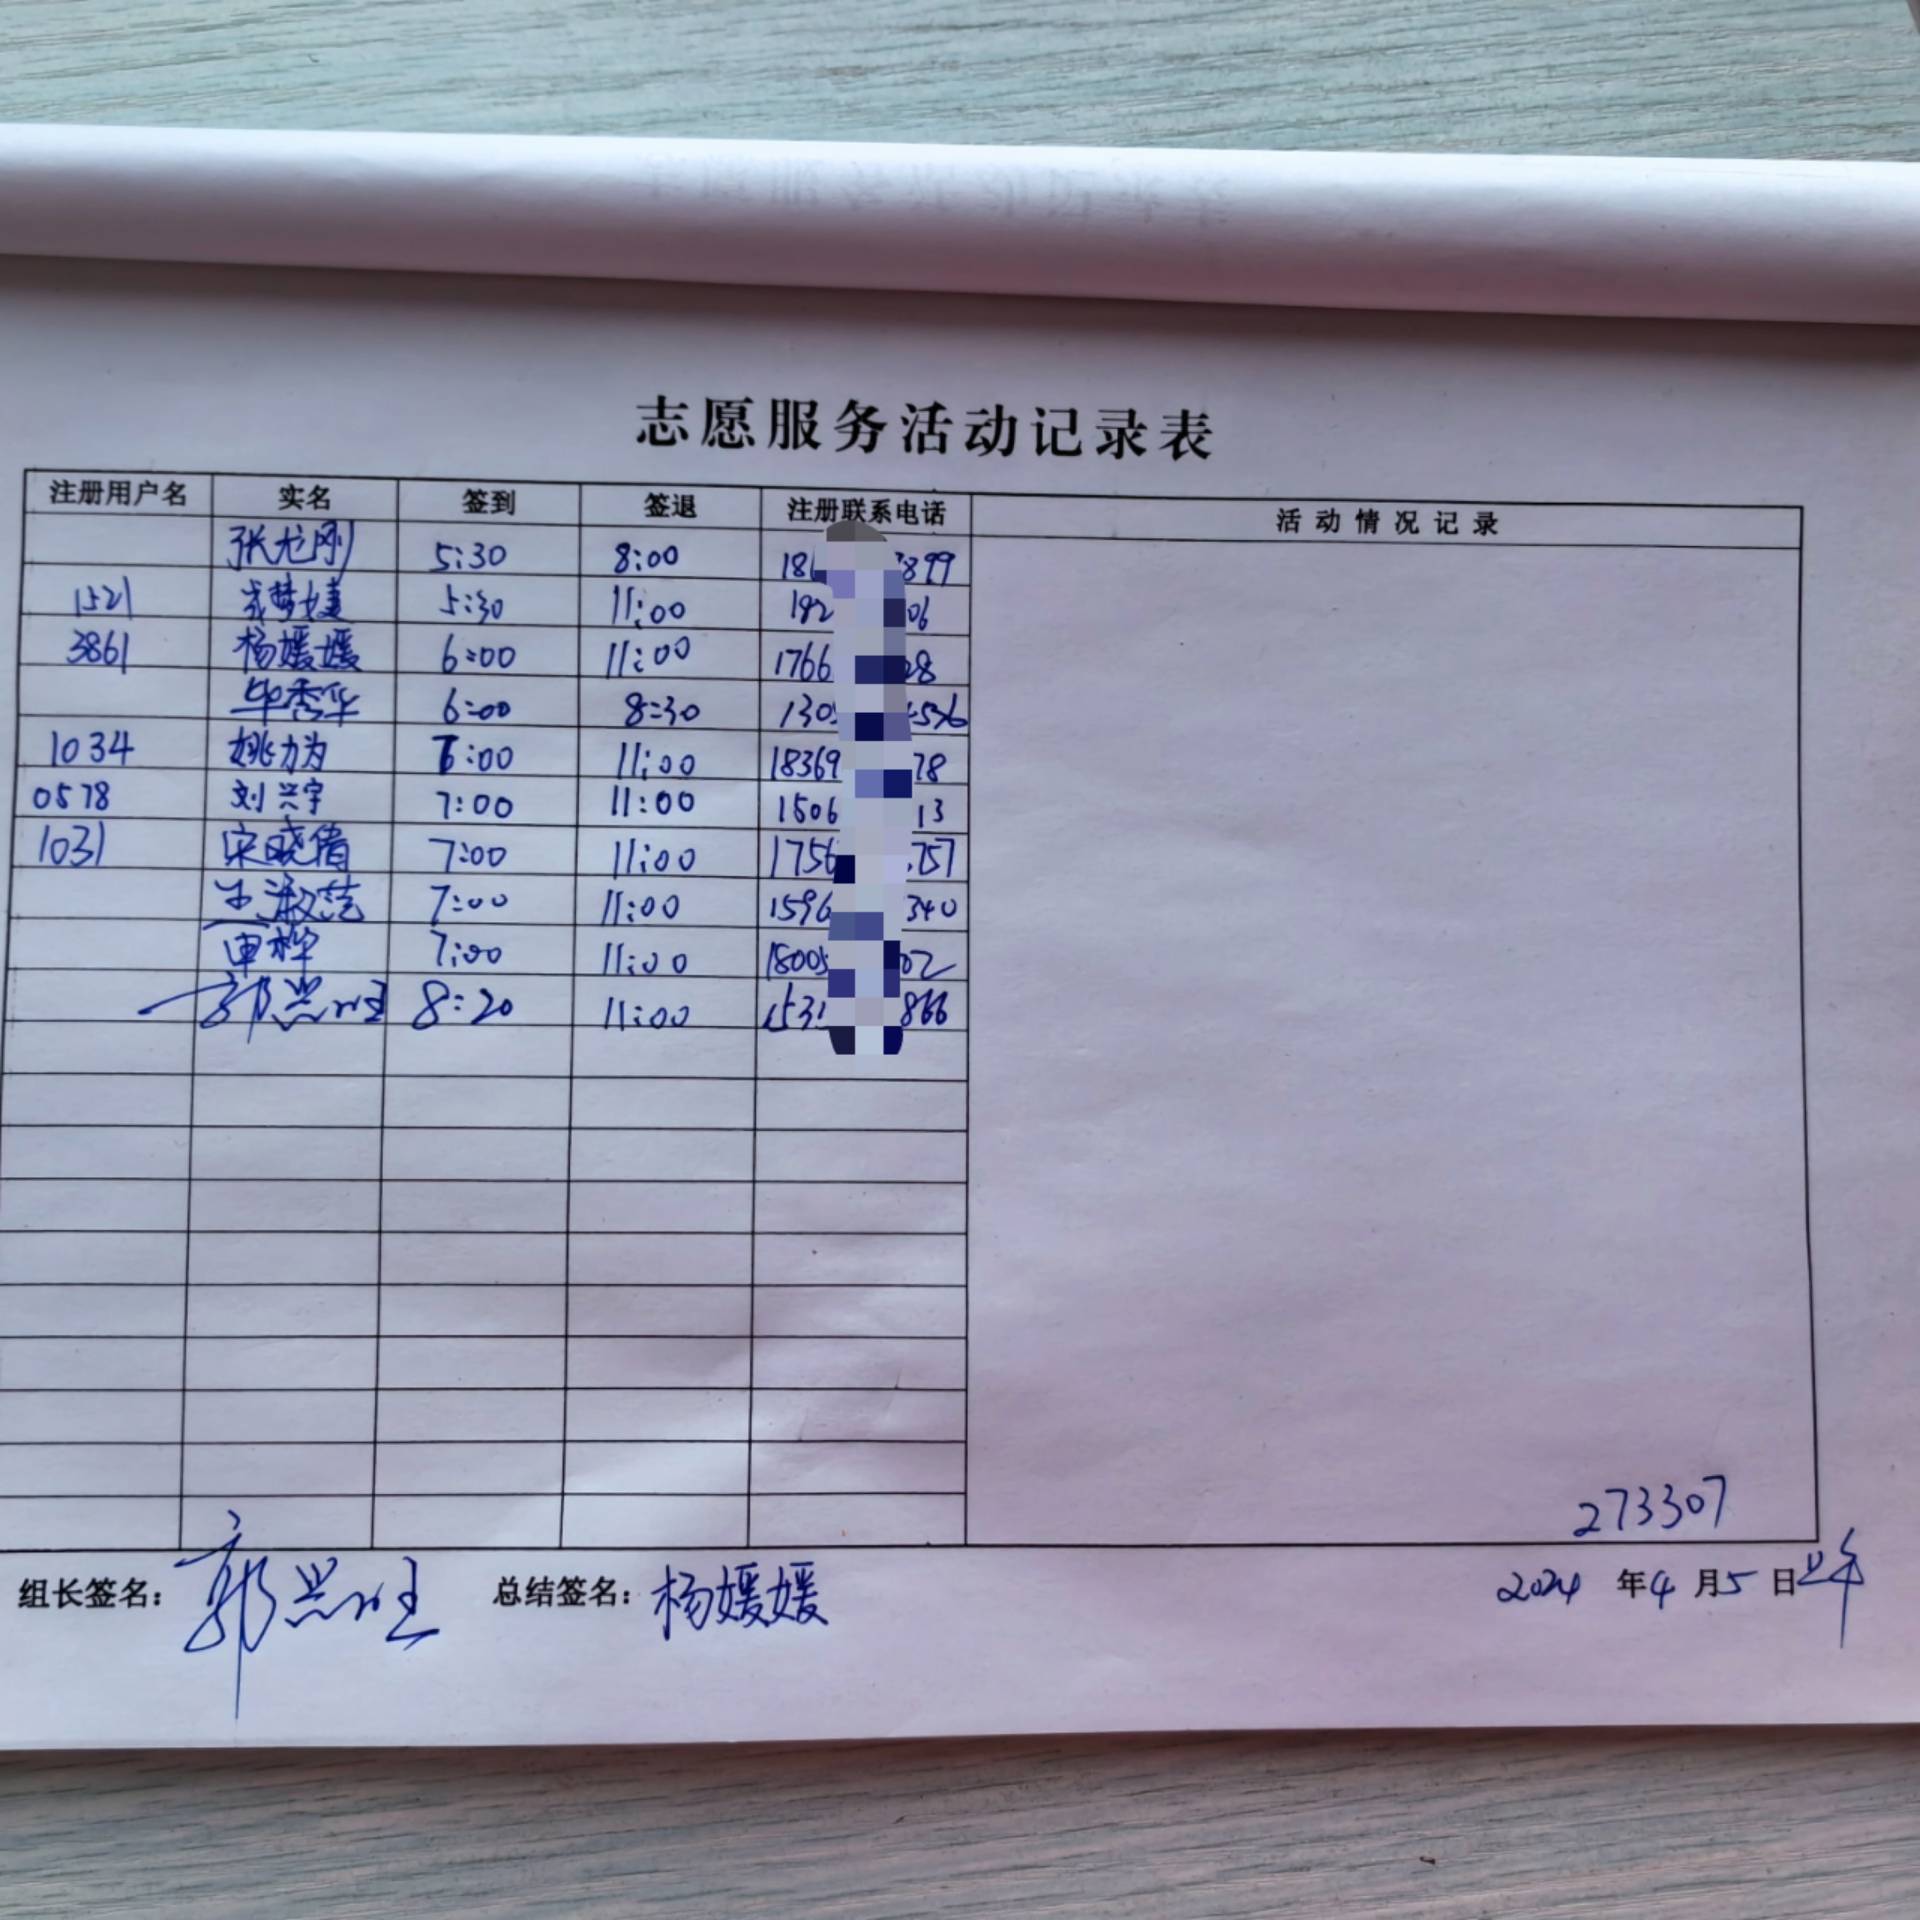 志愿服务活动记录表
注册用户名 实名 签到 签退 注册联系电话 活动情况记录
张龙刚 5:30 8:00 18 899
1521 5:30 11:00 192 06
3861 杨媛媛 6:00 11:00 1766 28
毕秀华 6:00 8:30 130 4596
1034 姚力为 6:00 11:00 18369 78
0578 刘兴宇 7:00 11:00 1506 13
1031 宋晓倩 7:00 11:00 1756 757
王淑范 7:00 11:00 1596 340
7:00 11:00 18005 02
郭兴旺 8:20 11:00 1531 866
273307
组长签名: 郭兴旺 总结签名: 杨媛媛 2024 年 4 月 5 日 上午